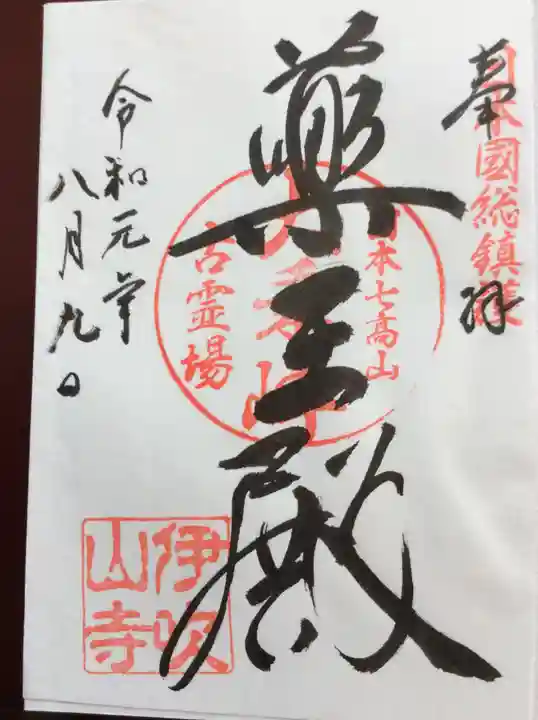 奉拝
日本國総鎮護
薬王殿
日本七高山
古霊場
令和元年
八月九日
伊吹
山寺